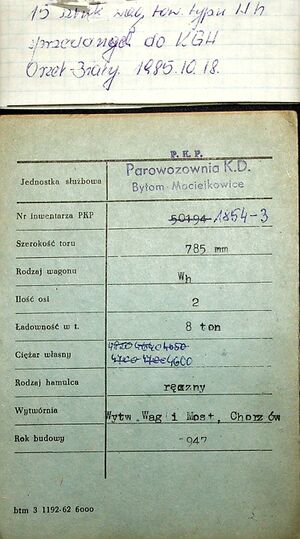 15 sztuk wag. tow. typu Wh
sprzedanych do KGH
Orzeł-Biały. 1985.10.18.
P.K.P.
Jednostka służbowa Parowozownia K.D.
Bytom Maciejkowice
Nr inwentarza PKP 50194 1854-3
Szerokość toru 785 mm
Rodzaj wagonu Wh
Ilość osi 2
Ładowność w t. 8 ton
Ciężar własny 4820 4640 4650
4700 4720 4600
Rodzaj hamulca ręczny
Wytwórnia Wytw. Wag i Most, Chorzów
Rok budowy 947
btm 3 1192-62 6000